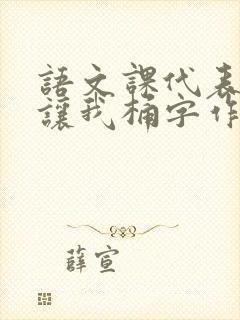 語文課代表
讓我桶字作
薛宣